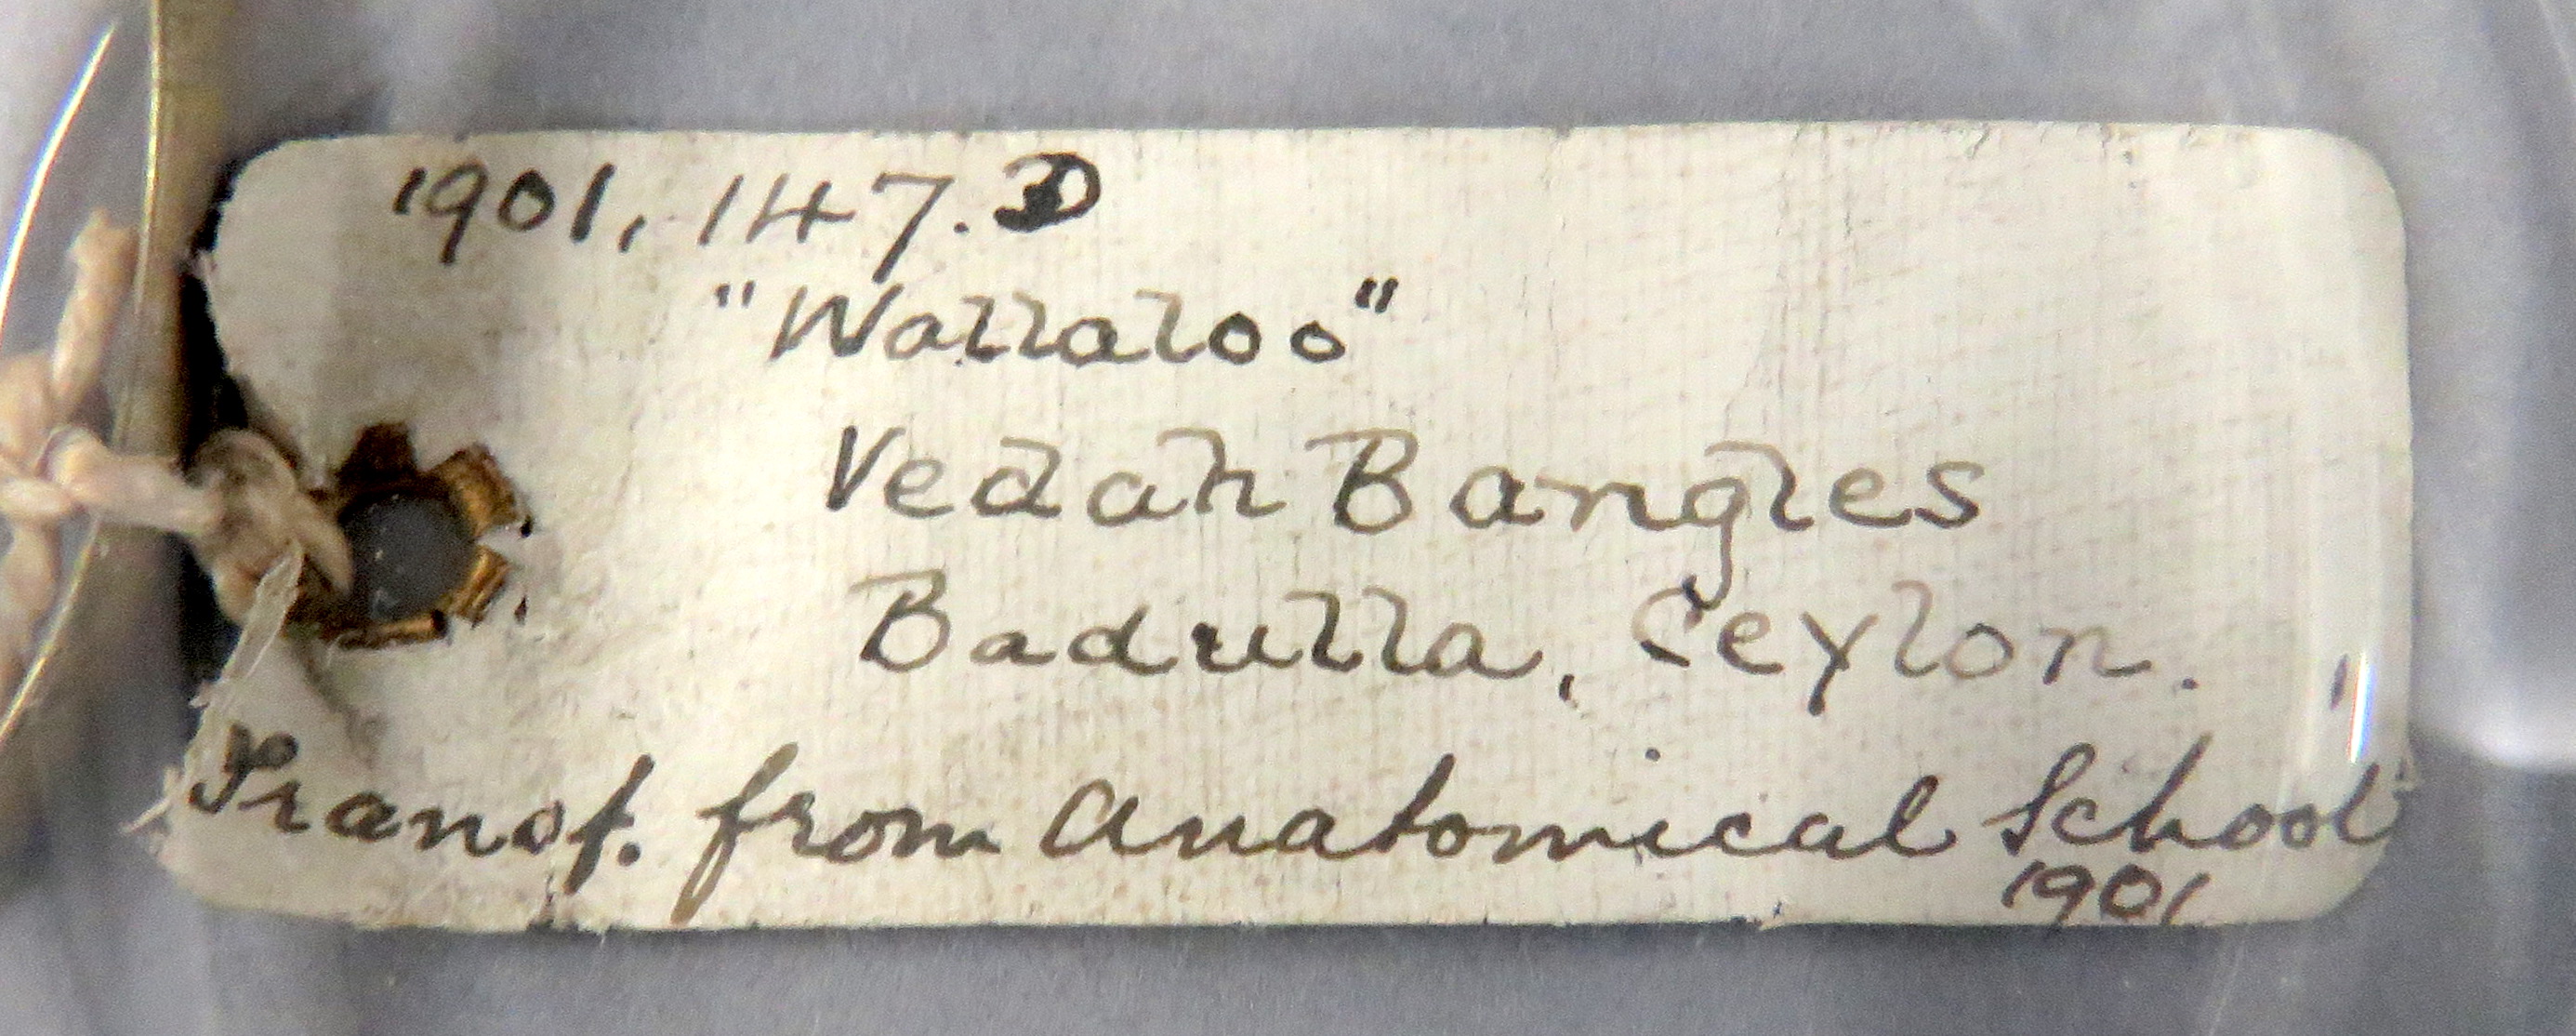 1901, 147.D
"Wallaloo"
Vedah Bangles
Badulla, Ceylon.
Transf. from Anatomical School
1901